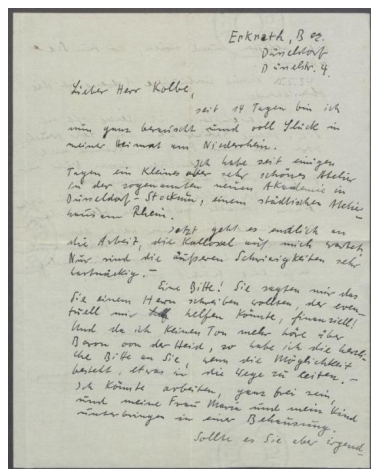 Erkrath, Bez.
Düsseldorf
Düsselstr. 4.
Lieber Herr Kolbe,
seit 14 Tagen bin ich
nun ganz berauscht und voll Glück in
meiner Heimat am Niederrhein.
Ich habe seit einigen
Tagen ein kleines aber sehr schönes Atelier
in der sogenannten neuen Akademie in
Düsseldorf-Stockum, einem städtischen Atelier-
haus am Rhein.
Jetzt geht es endlich an
die Arbeit, die kolossal auf mich wartet,
Nur sind die äußeren Schwierigkeiten sehr
hartnäckig.-
Eine Bitte! Sie sagten mir das
Sie einem Herrn schreiben wollten, der even-
tuell mir helfen könnte, finanziell!
Und da ich keinen Ton mehr höre über
Baron von der Heid, so habe ich die herzli-
che Bitte an Sie, wenn die Möglichkeit
besteht, etwas in die Wege zu leiten.-
Ich könnte arbeiten, ganz frei sein,
und meine Frau und mein Kind
unterbringen in einer Behausung.
Sollte es Sie aber irgend